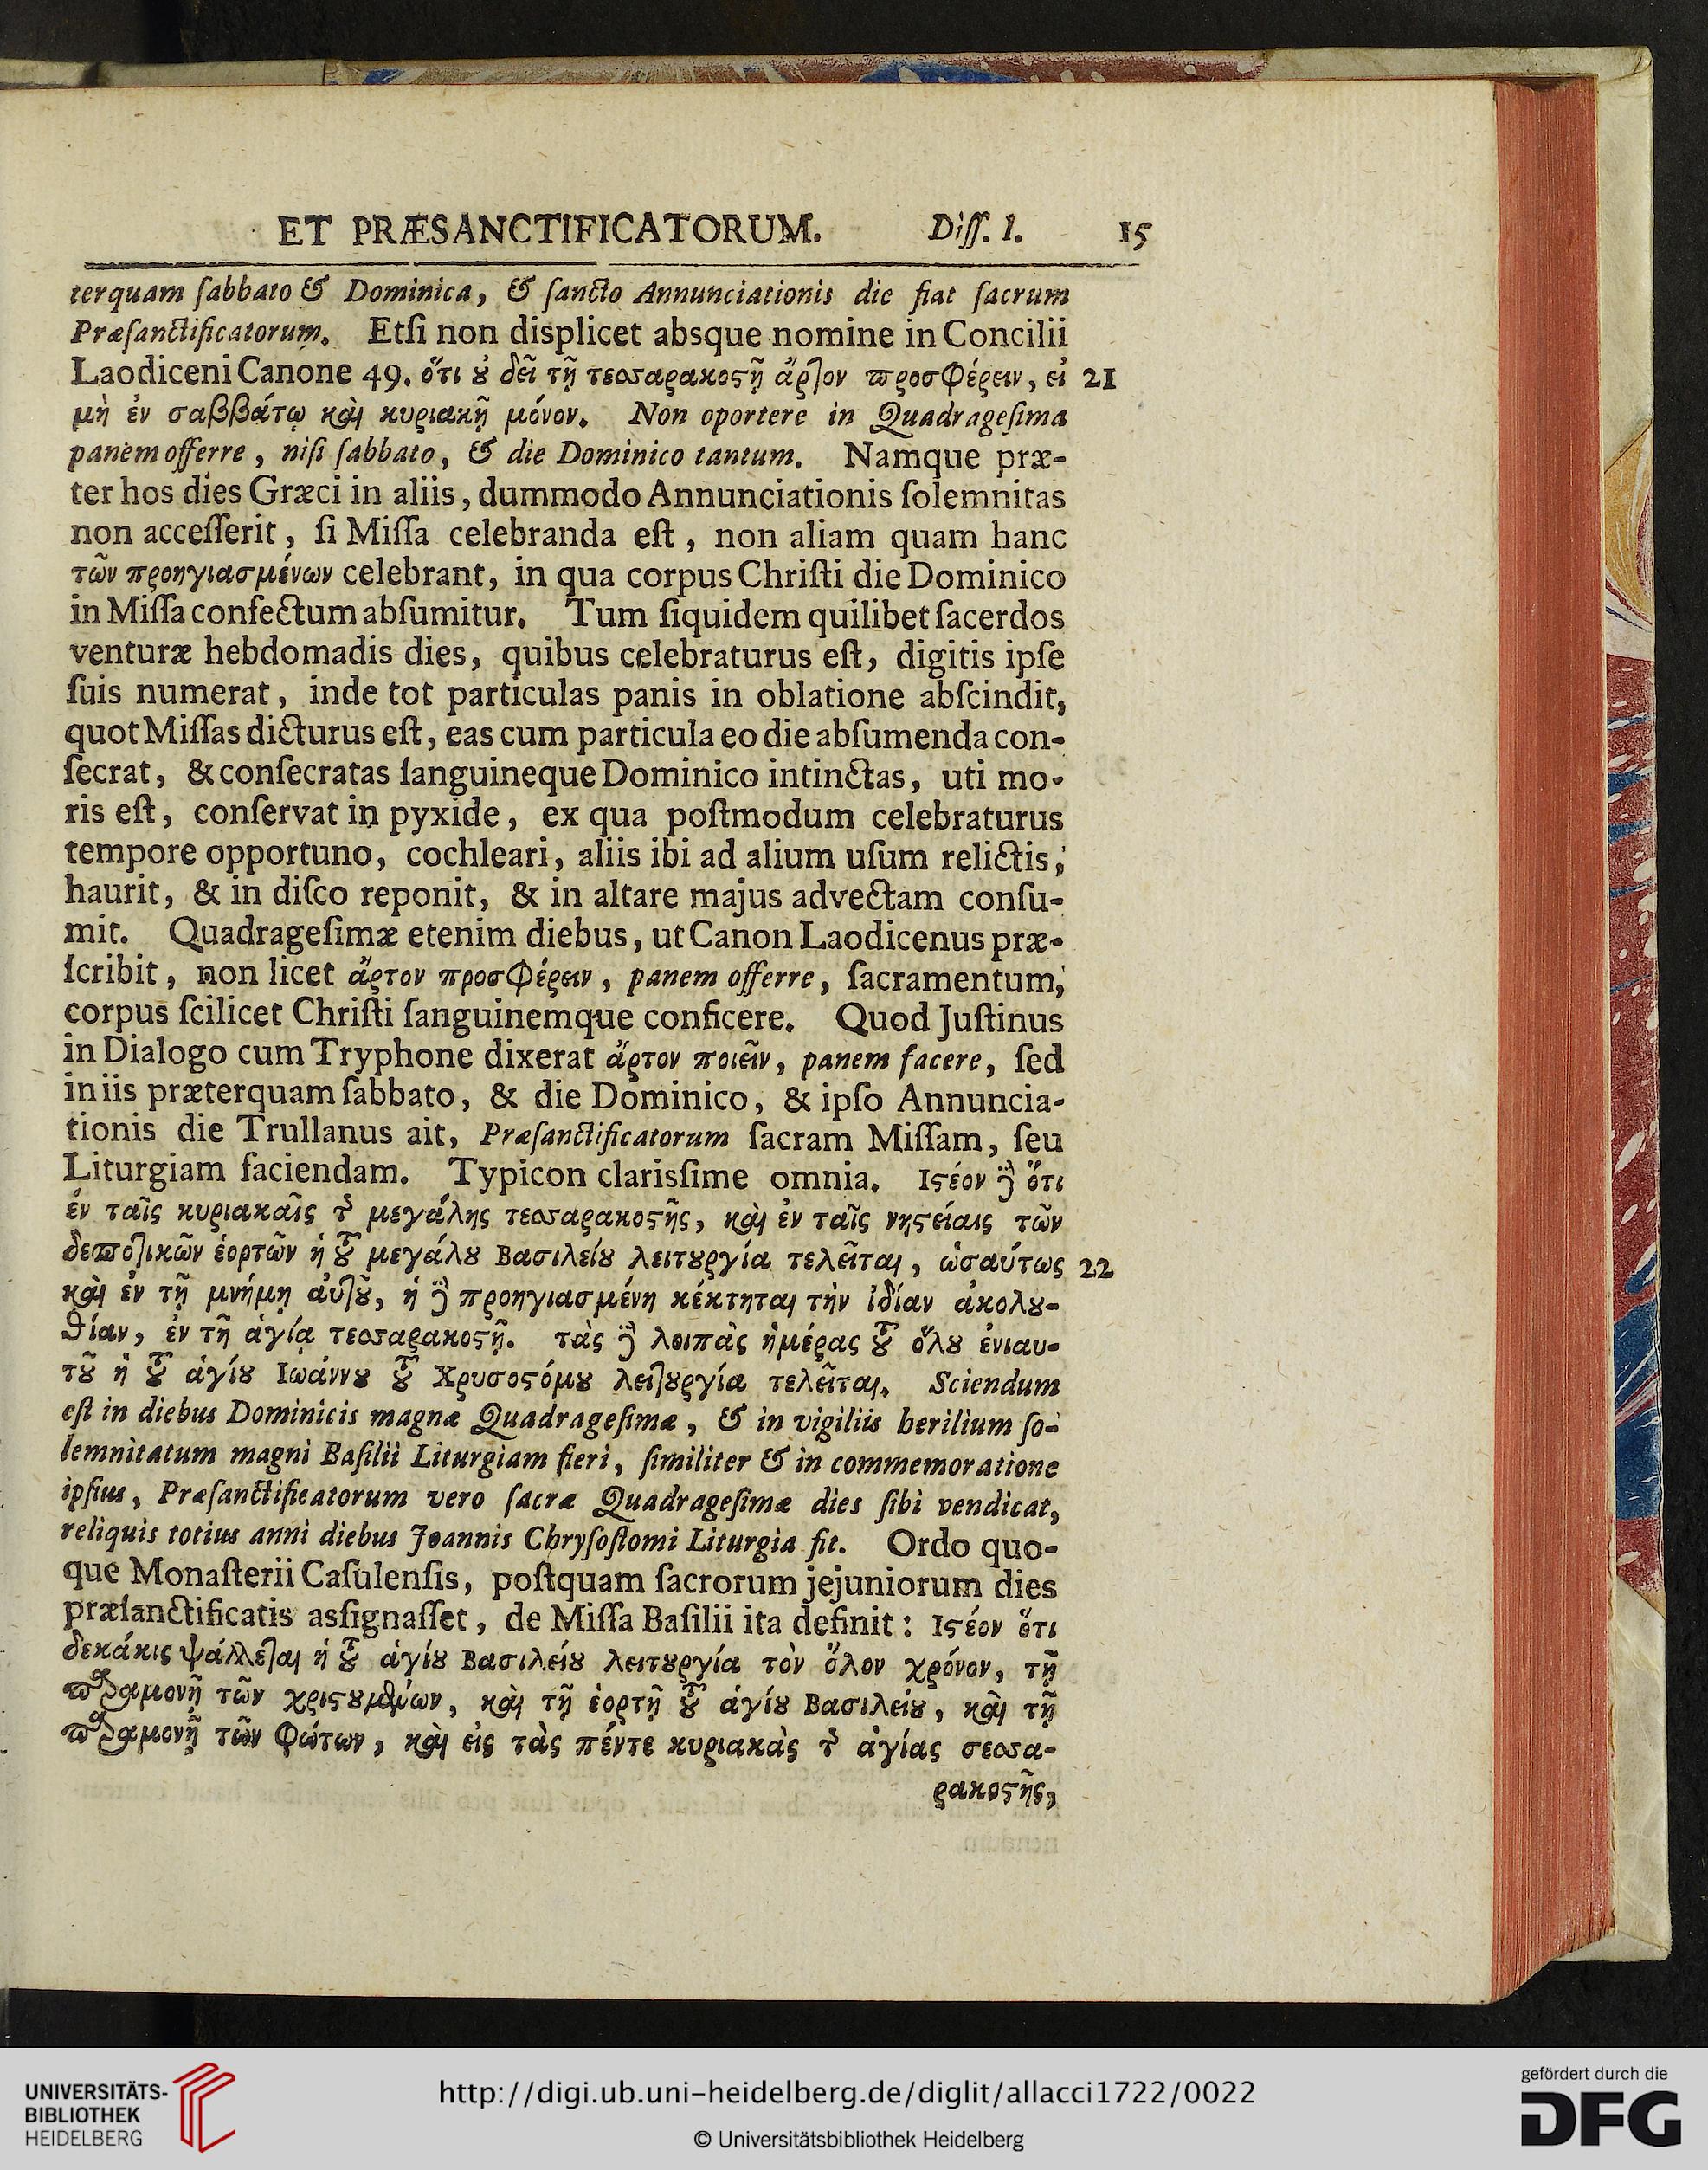 ET PRÆSANCTIFICATORUM. Diſſ. I. 15
terquam ſabbato & Dominica, & ſancto Annunciationis die fiat ſacrum
Præſanctificatorum. Etſi non displicet absque nomine in Concilii
Laodiceni Canone 49. ὅτι ȣ̓ δεῖ τῇ τεσσαρακοϛῇ ἄρτον προσφέρειν, εἰ 21
μὴ ἐν σαββάτῳ καὶ κυριακῇ μόνον. Non oportere in Quadrageſima
panem offerre, niſi ſabbato, & die Dominico tantum. Namque præ-
ter hos dies Græci in aliis, dummodo Annunciationis ſolemnitas
non acceſſerit, ſi Miſſa celebranda eſt, non aliam quam hanc
τῶν προηγιασμένων celebrant, in qua corpus Chriſti die Dominico
in Miſſa confectum abſumitur. Tum ſiquidem quilibet ſacerdos
venturæ hebdomadis dies, quibus celebraturus eſt, digitis ipſe
ſuis numerat, inde tot particulas panis in oblatione abſcindit,
quot Miſſas dicturus eſt, eas cum particula eo die abſumenda con-
ſecrat, & conſecratas ſanguineque Dominico intinctas, uti mo-
ris eſt, conſervat in pyxide, ex qua poſtmodum celebraturus
tempore opportuno, cochleari, aliis ibi ad alium uſum relictis,
haurit, & in diſco reponit, & in altare majus advectam conſu-
mit. Quadrageſimæ etenim diebus, ut Canon Laodicenus præ-
ſcribit, non licet ἄρτον προσφέρειν, panem offerre, ſacramentum,
corpus ſcilicet Chriſti ſanguinemque conficere. Quod Juſtinus
in Dialogo cum Tryphone dixerat ἄρτον ποιεῖν, panem facere, ſed
in iis præterquam ſabbato, & die Dominico, & ipſo Annuncia-
tionis die Trullanus ait, Præſanctificatorum ſacram Miſſam, ſeu
Liturgiam faciendam. Typicon clarisſime omnia. Ιϛέον δὲ ὅτι
ἐν ταῖς κυριακαῖς τῆς μεγάλης τεσσαρακοϛῆς, καὶ ἐν ταῖς νηϛείαις τῶν
δεσποτικῶν ἑορτῶν ἡ τȣ͂ μεγάλȣ Βασιλείȣ λειτȣργία τελεῖται, ὡσαύτως 22
καὶ ἐν τῇ μνήμῃ αὐτȣ͂, ἡ δὲ προηγιασμένη κέκτηται τὴν ἰδίαν ἀκολȣ-
θίαν, ἐν τῇ ἁγίᾳ τεσσαρακοϛῇ. τὰς δὲ λοιπὰς ἡμέρας τȣ͂ ὅλȣ ἐνιαυ-
τȣ͂ ἡ τȣ͂ ἁγίȣ Ιωάννȣ τȣ͂ Χρυσοϛόμȣ λειτȣργία τελεῖται. Sciendum
eſt in diebus Dominicis magnæ Quadrageſimæ, & in vigiliis herilium ſo-
lemnitatum magni Baſilii Liturgiam fieri, ſimiliter & in commemoratione
ipſius, Præſanctificatorum vero ſacræ Quadrageſimæ dies ſibi vendicat,
reliquis totius anni diebus Joannis Chryſoſtomi Liturgia fit. Ordo quo-
que Monaſterii Caſulenſis, poſtquam ſacrorum jejuniorum dies
præſanctificatis asſignaſſet, de Miſſa Baſilii ita definit: Ιϛέον ὅτι
δεκάκις ψάλλεται ἡ τȣ͂ ἁγίȣ Βασιλείȣ λειτȣργία τὸν ὅλον χρόνον, τῇ
παραμονῇ τῶν χριϛȣμένων, καὶ τῇ ἑορτῇ τȣ͂ ἁγίȣ Βασιλείȣ, καὶ τῇ
παραμονῇ τῶν Φώτων, καὶ εἰς τὰς πέντε κυριακὰς τῆς ἁγίας σεσσα-
ρακοϛῆς,
UNIVERSITÄTS-
BIBLIOTHEK
HEIDELBERG
http://digi.ub.uni-heidelberg.de/diglit/allacci1722/0022
© Universitätsbibliothek Heidelberg
gefördert durch die
DFG